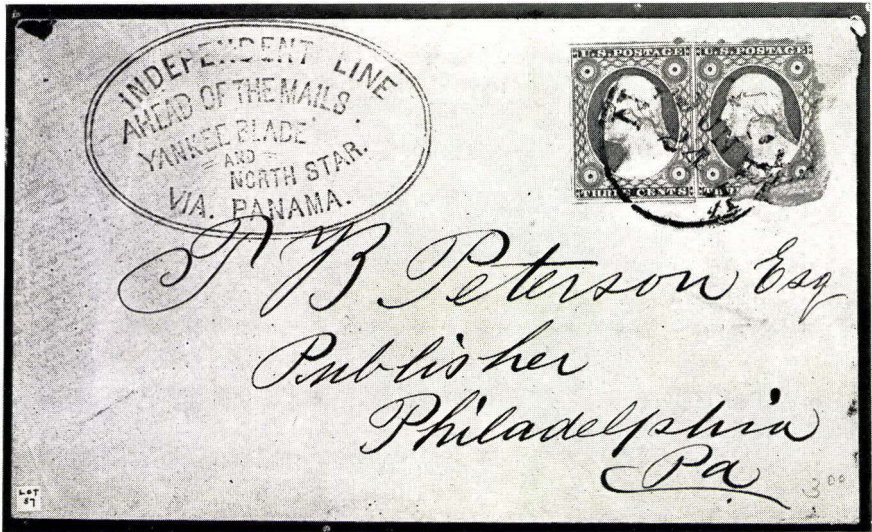 INDEPENDENT LINE
AHEAD OF THE MAILS
YANKEE BLADE
= AND =
NORTH STAR.
VIA. PANAMA.
U.S. POSTAGE U.S. POSTAGE
THREE CENTS
JUN
T B Peterson Esq
Publisher
Philadelphia
Pa
LOT
57